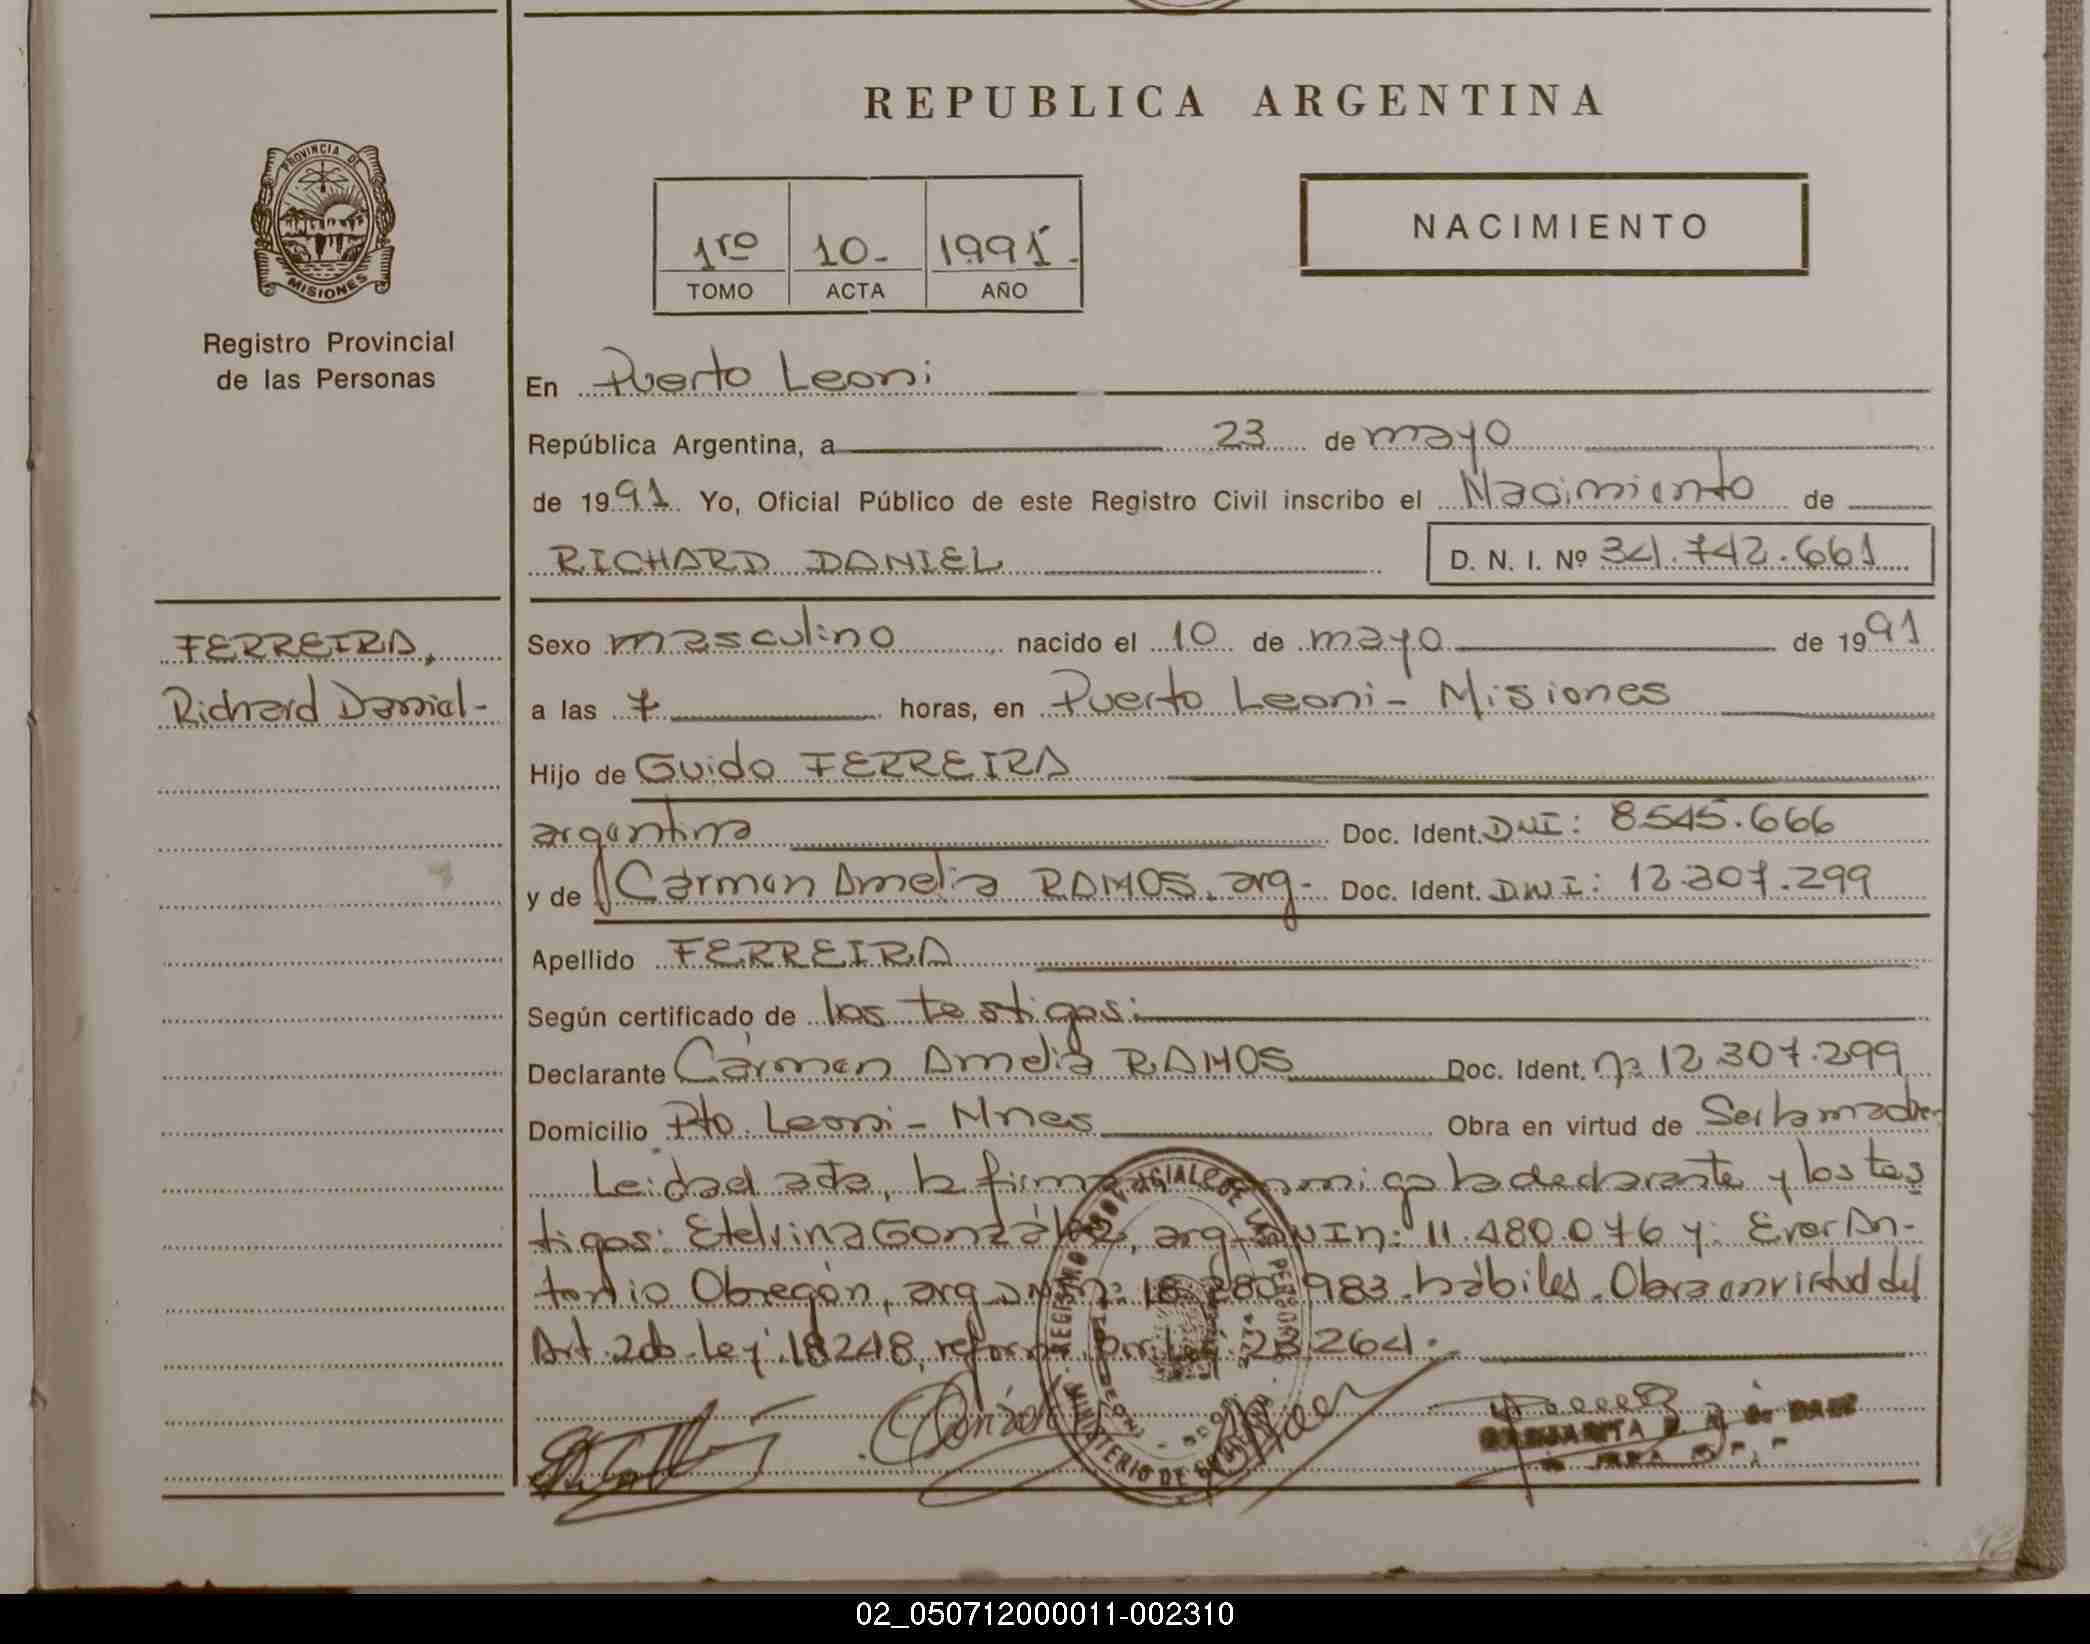 REPUBLICA ARGENTINA
PROVINCIA DE
MISIONES
Registro Provincial
de las Personas
1ro 10- 1991-
TOMO ACTA AÑO
NACIMIENTO
En Puerto Leoni
República Argentina, a 23 de mayo
de 1991 Yo, Oficial Público de este Registro Civil inscribo el Nacimiento de
RICHARD DANIEL D. N. I. Nº 34.742.661
FERREIRA,
Richard Daniel-
Sexo masculino nacido el 10 de mayo de 1991
a las 7 horas, en Puerto Leoni - Misiones
Hijo de Guido FERREIRA
argentino Doc. Ident. DNI: 8.545.666
y de Carmen Amelia RAMOS, arg- Doc. Ident. DNI: 12.307.299
Apellido FERREIRA
Según certificado de los testigos:
Declarante Carmen Amelia RAMOS Doc. Ident. nº 12.307.299
Domicilio Pto. Leoni - Mnes Obra en virtud de Ser la madre-
Leida el acta, la firma conmigo la declarante y los tes
tigos: Etelvina González, arg- DNI nº 11.480.076 y: Ever An-
tonio Obregón, arg DNI nº 18.280.983. hábiles. Obra en virtud del
Art. 2do. Ley 18248, reform por Ley 23.264.
REGISTRO PROVINCIAL DE LAS PERSONAS
MINISTERIO DE GOBIERNO
MARGARITA
02_050712000011-002310